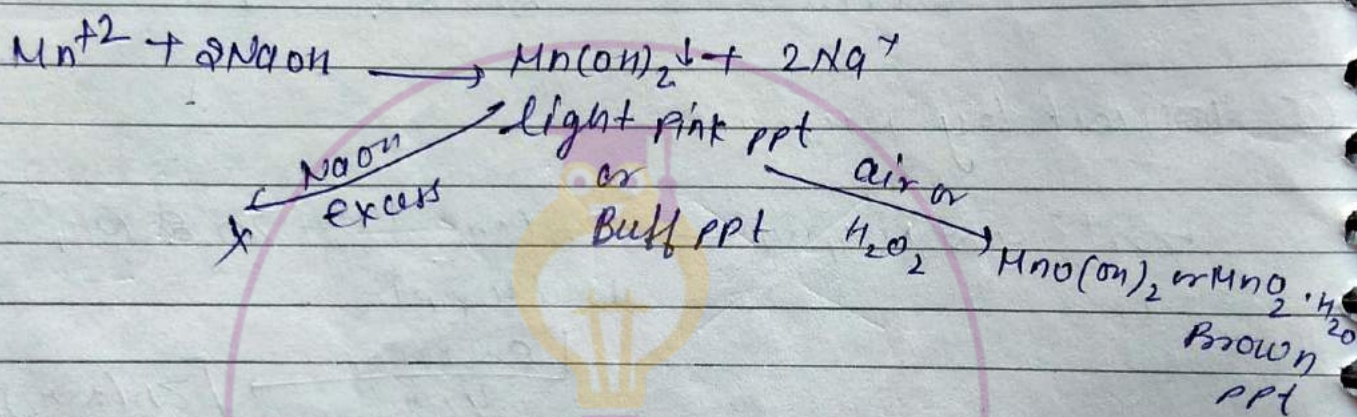 Mn⁺² + 2NaOH ⟶ Mn(OH)₂↓ + 2Na⁺
light pink ppt
or
Buff ppt
NaOH
excess
x
air or
H₂O₂
MnO(OH)₂ or MnO₂·H₂O
Brown
ppt